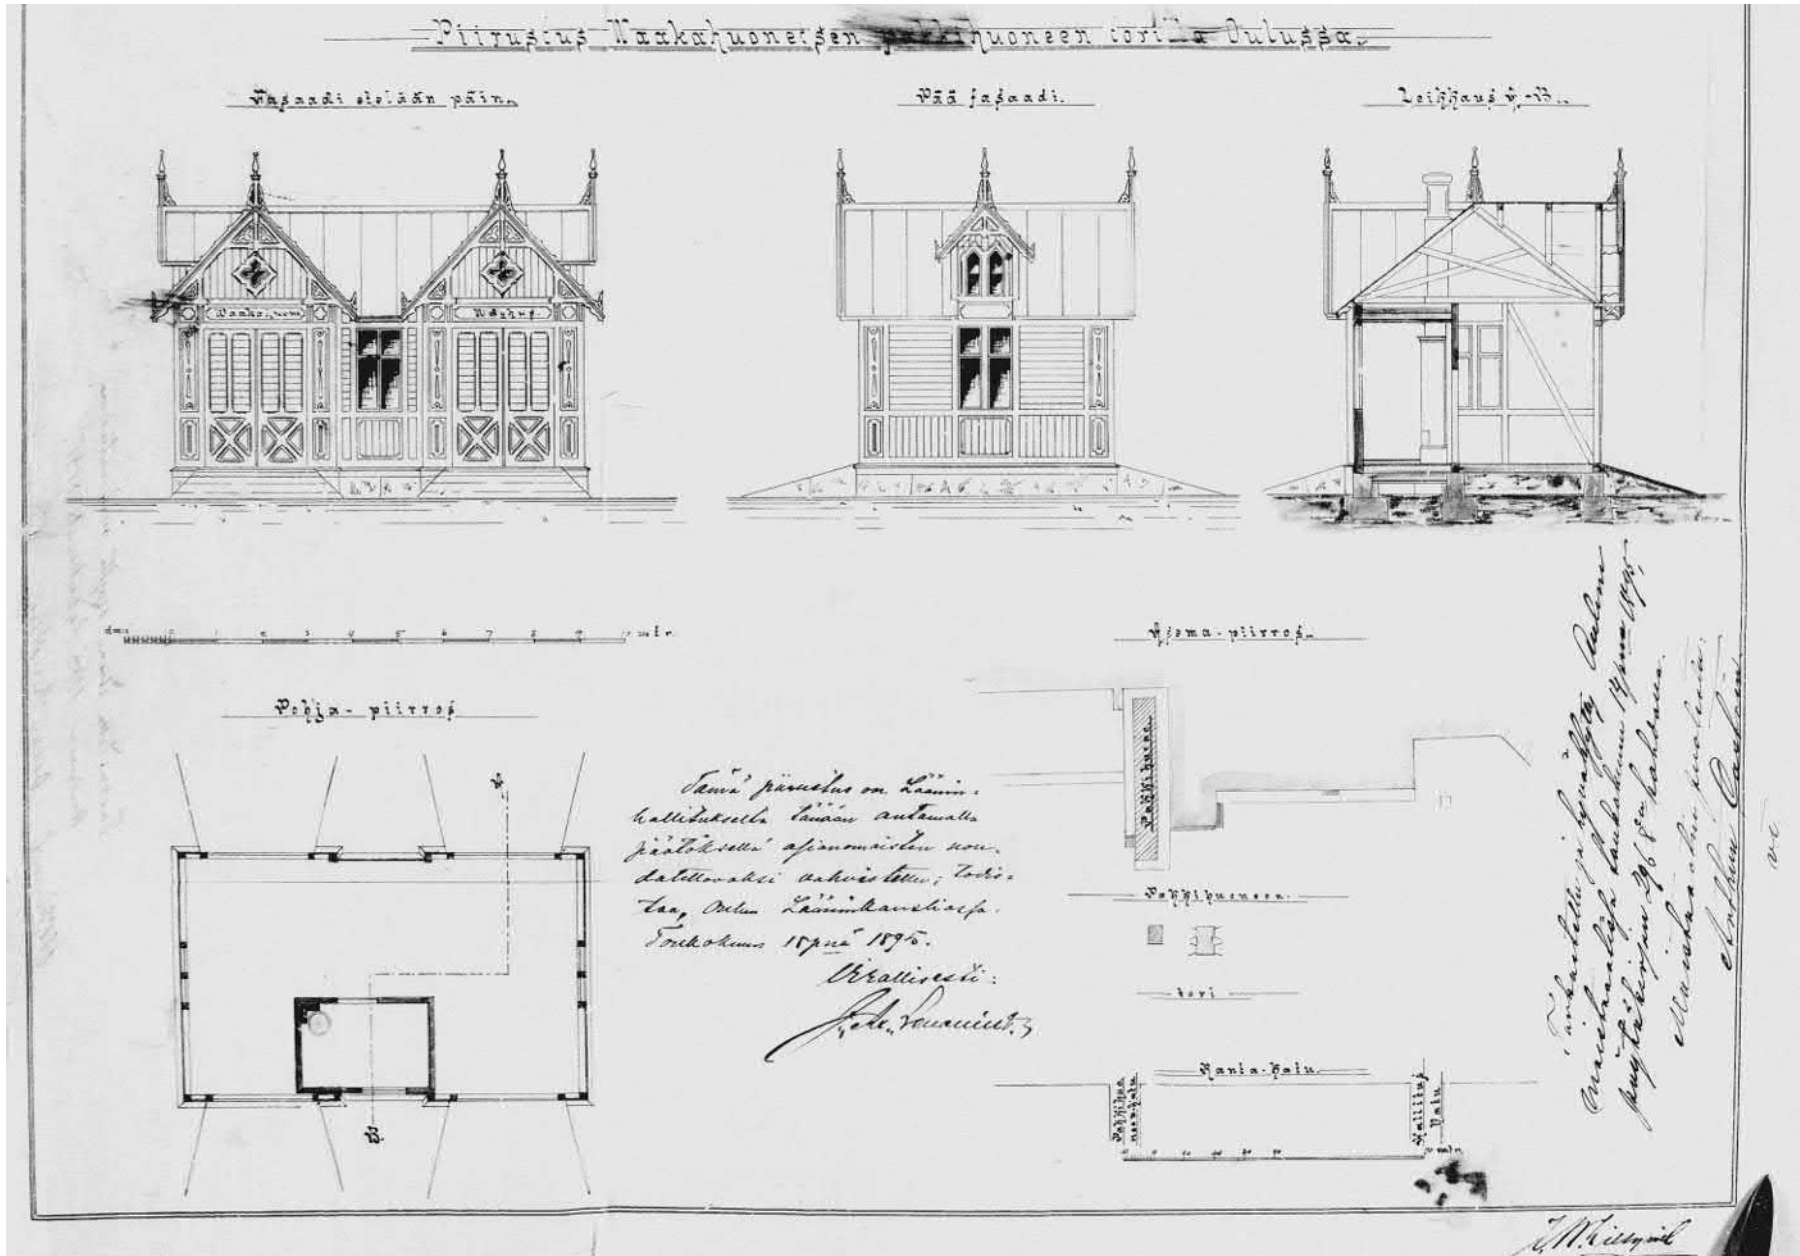 Piirustus Waakahuoneesen pakkihuoneen torilla Oulussa.
Fasaadi etelään päin.
Pää fasaadi.
Leikkaus A.-B.
Waakahuone
Waghus.
dm 0 1 2 3 4 5 6 7 8 9 mtr.
Pohja-piirros
A.
B.
Tämä piirustus on Läänin-
hallitukselta tänään antamalla
päätöksellä asianomaisten nou-
datettavaksi vahvistettu; todis-
taa, Oulun Lääninkansliassa
Toukokuun 18 pnä 1895.
Virallisesti:
Asema-piirros.
Pakkihuone.
Pakkihuoneen
tori
Ranta-katu.
Pakkihuo
neenkatu
Hallitus
Katu
mtr.
Tarkastettu ja hyväksytty Oulun
Maistraatissa toukokuun 14 pnä 1895,
pöytäkirjan 296 §:n kohdassa.
Maistraatin puolesta: